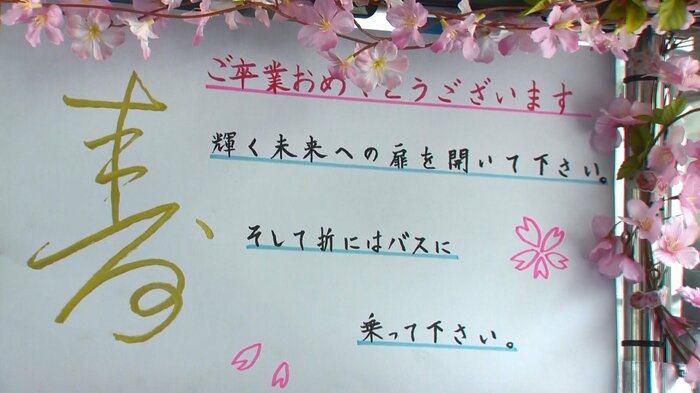 寿
ご卒業おめでとうございます
輝く未来への扉を開いて下さい。
そして折にはバスに
乗って下さい。